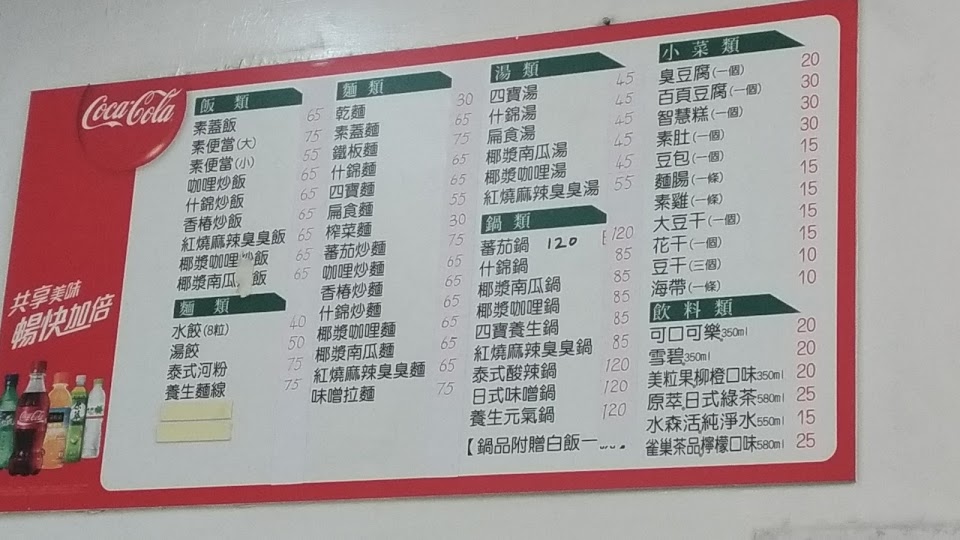 Coca-Cola
共享美味
暢快加倍
飯 類
素蓋飯 65
素便當(大) 75
素便當(小) 55
咖哩炒飯 65
什錦炒飯 65
香椿炒飯 65
紅燒麻辣臭臭飯 65
椰漿咖哩炒飯 65
椰漿南瓜 飯 65
麵 類
水餃(8粒) 40
湯餃 50
泰式河粉 75
養生麵線 75
麵 類
乾麵 30
素蓋麵 65
鐵板麵 75
什錦麵 65
四寶麵 65
扁食麵 55
榨菜麵 30
蕃茄炒麵 75
咖哩炒麵 65
香椿炒麵 65
什錦炒麵 65
椰漿咖哩麵 65
椰漿南瓜麵 65
紅燒麻辣臭臭麵 65
味噌拉麵 75
湯 類
四寶湯 45
什錦湯 45
扁食湯 45
椰漿南瓜湯 45
椰漿咖哩湯 45
紅燒麻辣臭臭湯 55
鍋 類
蕃茄鍋 120 120
什錦鍋 85
椰漿南瓜鍋 85
椰漿咖哩鍋 85
四寶養生鍋 85
紅燒麻辣臭臭鍋 85
泰式酸辣鍋 120
日式味噌鍋 120
養生元氣鍋 120
【鍋品附贈白飯一
小 菜 類
臭豆腐(一個) 20
百頁豆腐(一個) 30
智慧糕(一個) 30
素肚(一個) 30
豆包(一個) 15
麵腸(一條) 15
素雞(一條) 15
大豆干(一個) 15
花干(一個) 15
豆干(三個) 10
海帶(一條) 10
飲 料 類
可口可樂350ml 20
雪碧350ml 20
美粒果柳橙口味350ml 20
原萃日式綠茶580ml 25
水森活純淨水550ml 15
雀巢茶品檸檬口味580ml 25